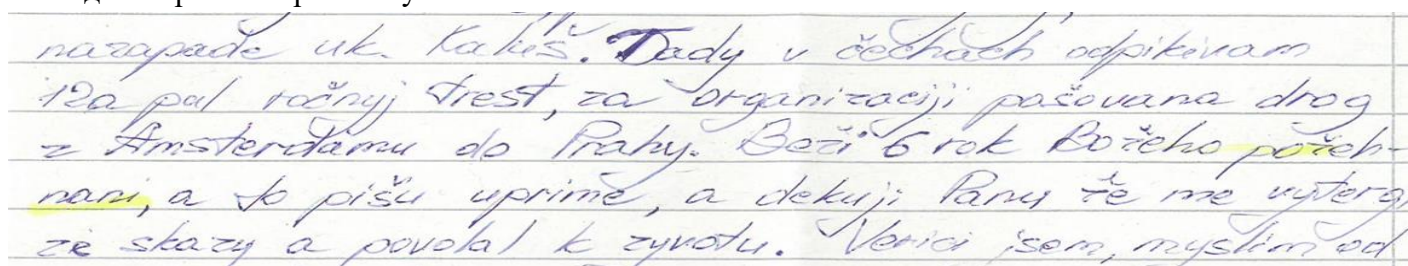 nazapade uk. Kaluš. Tady v čechach odpikivam
12a pul ročnyj trest, za organizaciji pašovana drog
z Amsterdamu do Prahy. Beži 6 rok Božeho požeh-
nani, a to pišu uprime, a dekuji Panu že me vyterg
ze skazy a povolal k zyvotu. Verici jsem, myslim od